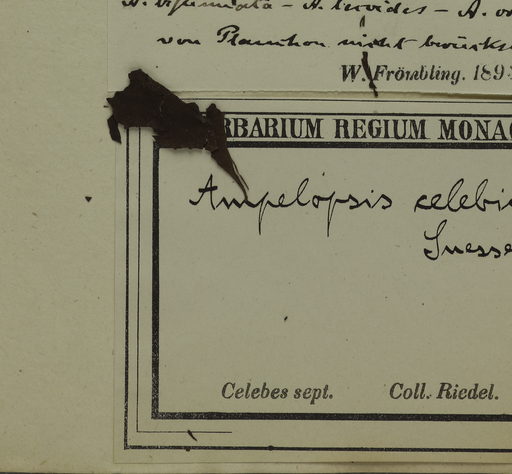 von Planchon nicht
W. Frömbling. 189
RBARIUM REGIUM MONAC
Ampelopsis celebi
Suesse
Celebes sept. Coll. Riedel.